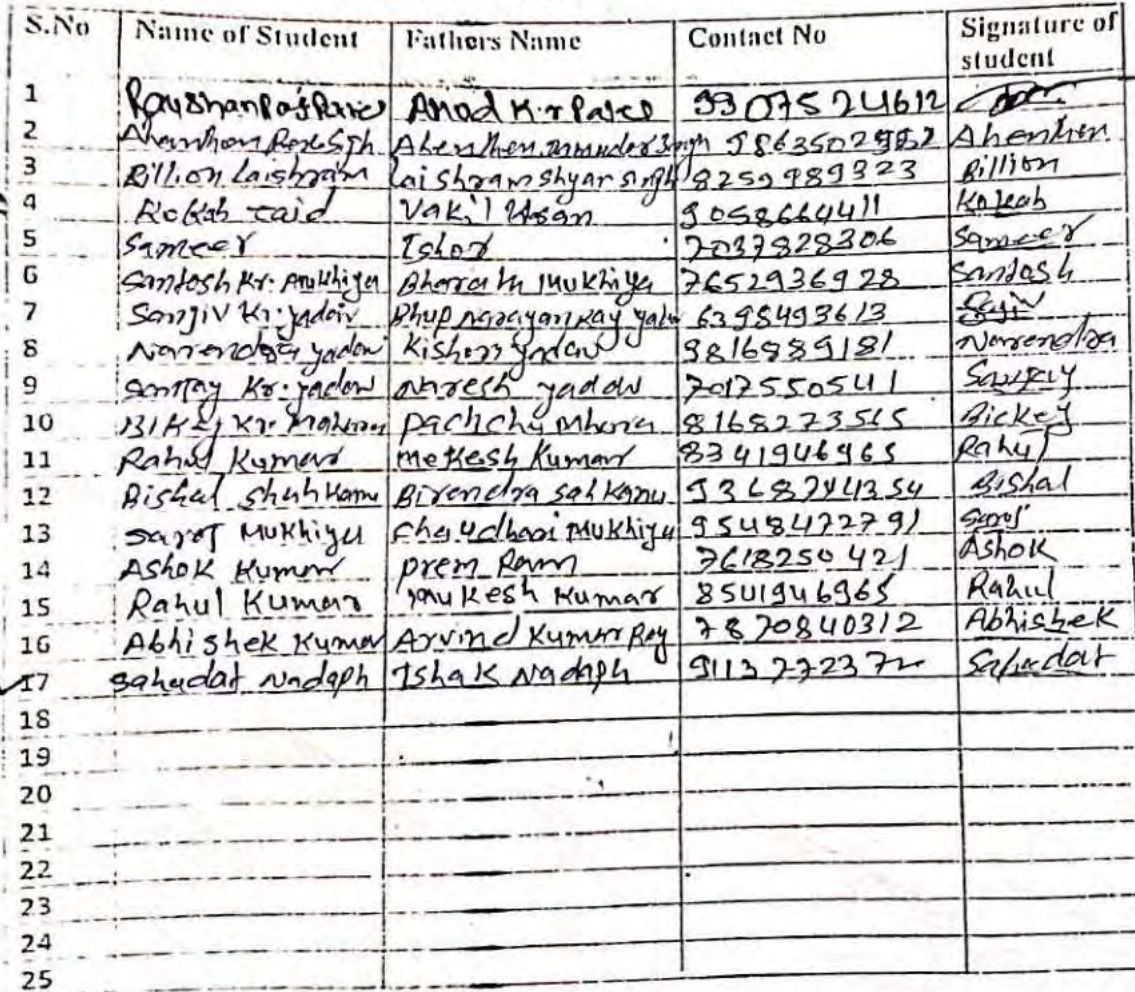 S.No Name of Student Fathers Name Contact No Signature of student
1 Anod Kr 9907524612
2 Ahenthem
3 Billion Laishram Laishram shyar singh 8259989323 Billion
4 Vakil 9058664411
5 Sameer Ishor 7037828306 Sameer
6 Santosh Kr. Mukhiya Mukhiya 7652936928 Santosh
7 Sanjiv Kr. yadav Bhup Narayan Ray 6398493613
8 Narendra yadav Kishori yadav 9816989181 Narendra
9 Sanjay Kr. yadav Naresh yadav 7017550541 Sanjay
10 Kr. 8168273565 Bickey
11 Rahul Kumar mekesh Kumar 8341946965 Rahul
12 Bishal shah Kanu Birendra sah Kanu 9368794354 Bishal
13 saroj Mukhiya Chaudhari Mukhiya 9548472791 saroj
14 Ashok Kumar prem Ram 7618250421 Ashok
15 Rahul Kumar mukesh Kumar 8541946965 Rahul
16 Abhishek Kumar Arvind Kumar Ray 7870840312 Abhishek
17 sahadat Nadaph Ishak Nadaph Sahadat
18
19
20
21
22
23
24
25